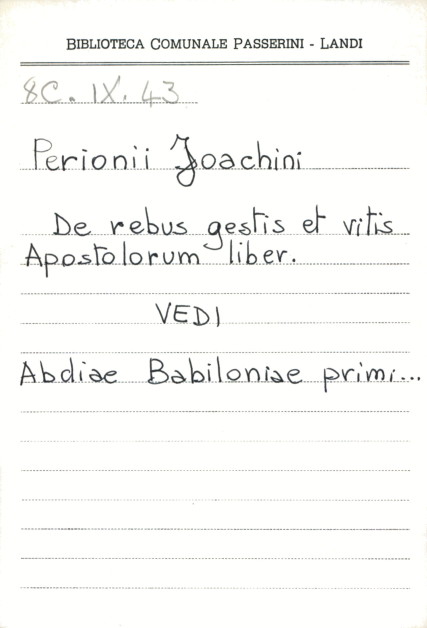 BIBLIOTECA COMUNALE PASSERINI - LANDI
8C. IX. 43
Perionii Joachini
De rebus gestis et vitis
Apostolorum liber.
VEDI
Abdiae Babiloniae primi...